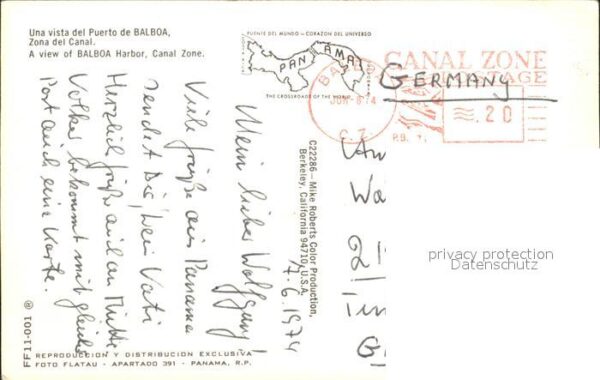 Una vista del Puerto de BALBOA,
Zona del Canal.
A view of BALBOA Harbor, Canal Zone.
PUENTE DEL MUNDO - CORAZON DEL UNIVERSO
PAN AMA
THE CROSSROADS OF THE WORLD
CANAL ZONE
POSTAGE
GERMANY
BAL
JUN-8'74
C.Z.
P.B.
.20
7.6.1974
Mein lieber Wolfgang!
Viele Grüße aus Panama
sendet Dir, Dein Vati
Herzliche Grüße auch an Mutti
Volker bekommt mit gleicher
Post auch eine Karte.
C22286—Mike Roberts Color Production,
Berkeley, California 94710, U.S.A.
An
Wa
privacy protection
Datenschutz
FF11-001 ®
REPRODUCCION Y DISTRIBUCION EXCLUSIVA
FOTO FLATAU - APARTADO 391 - PANAMA, R.P.